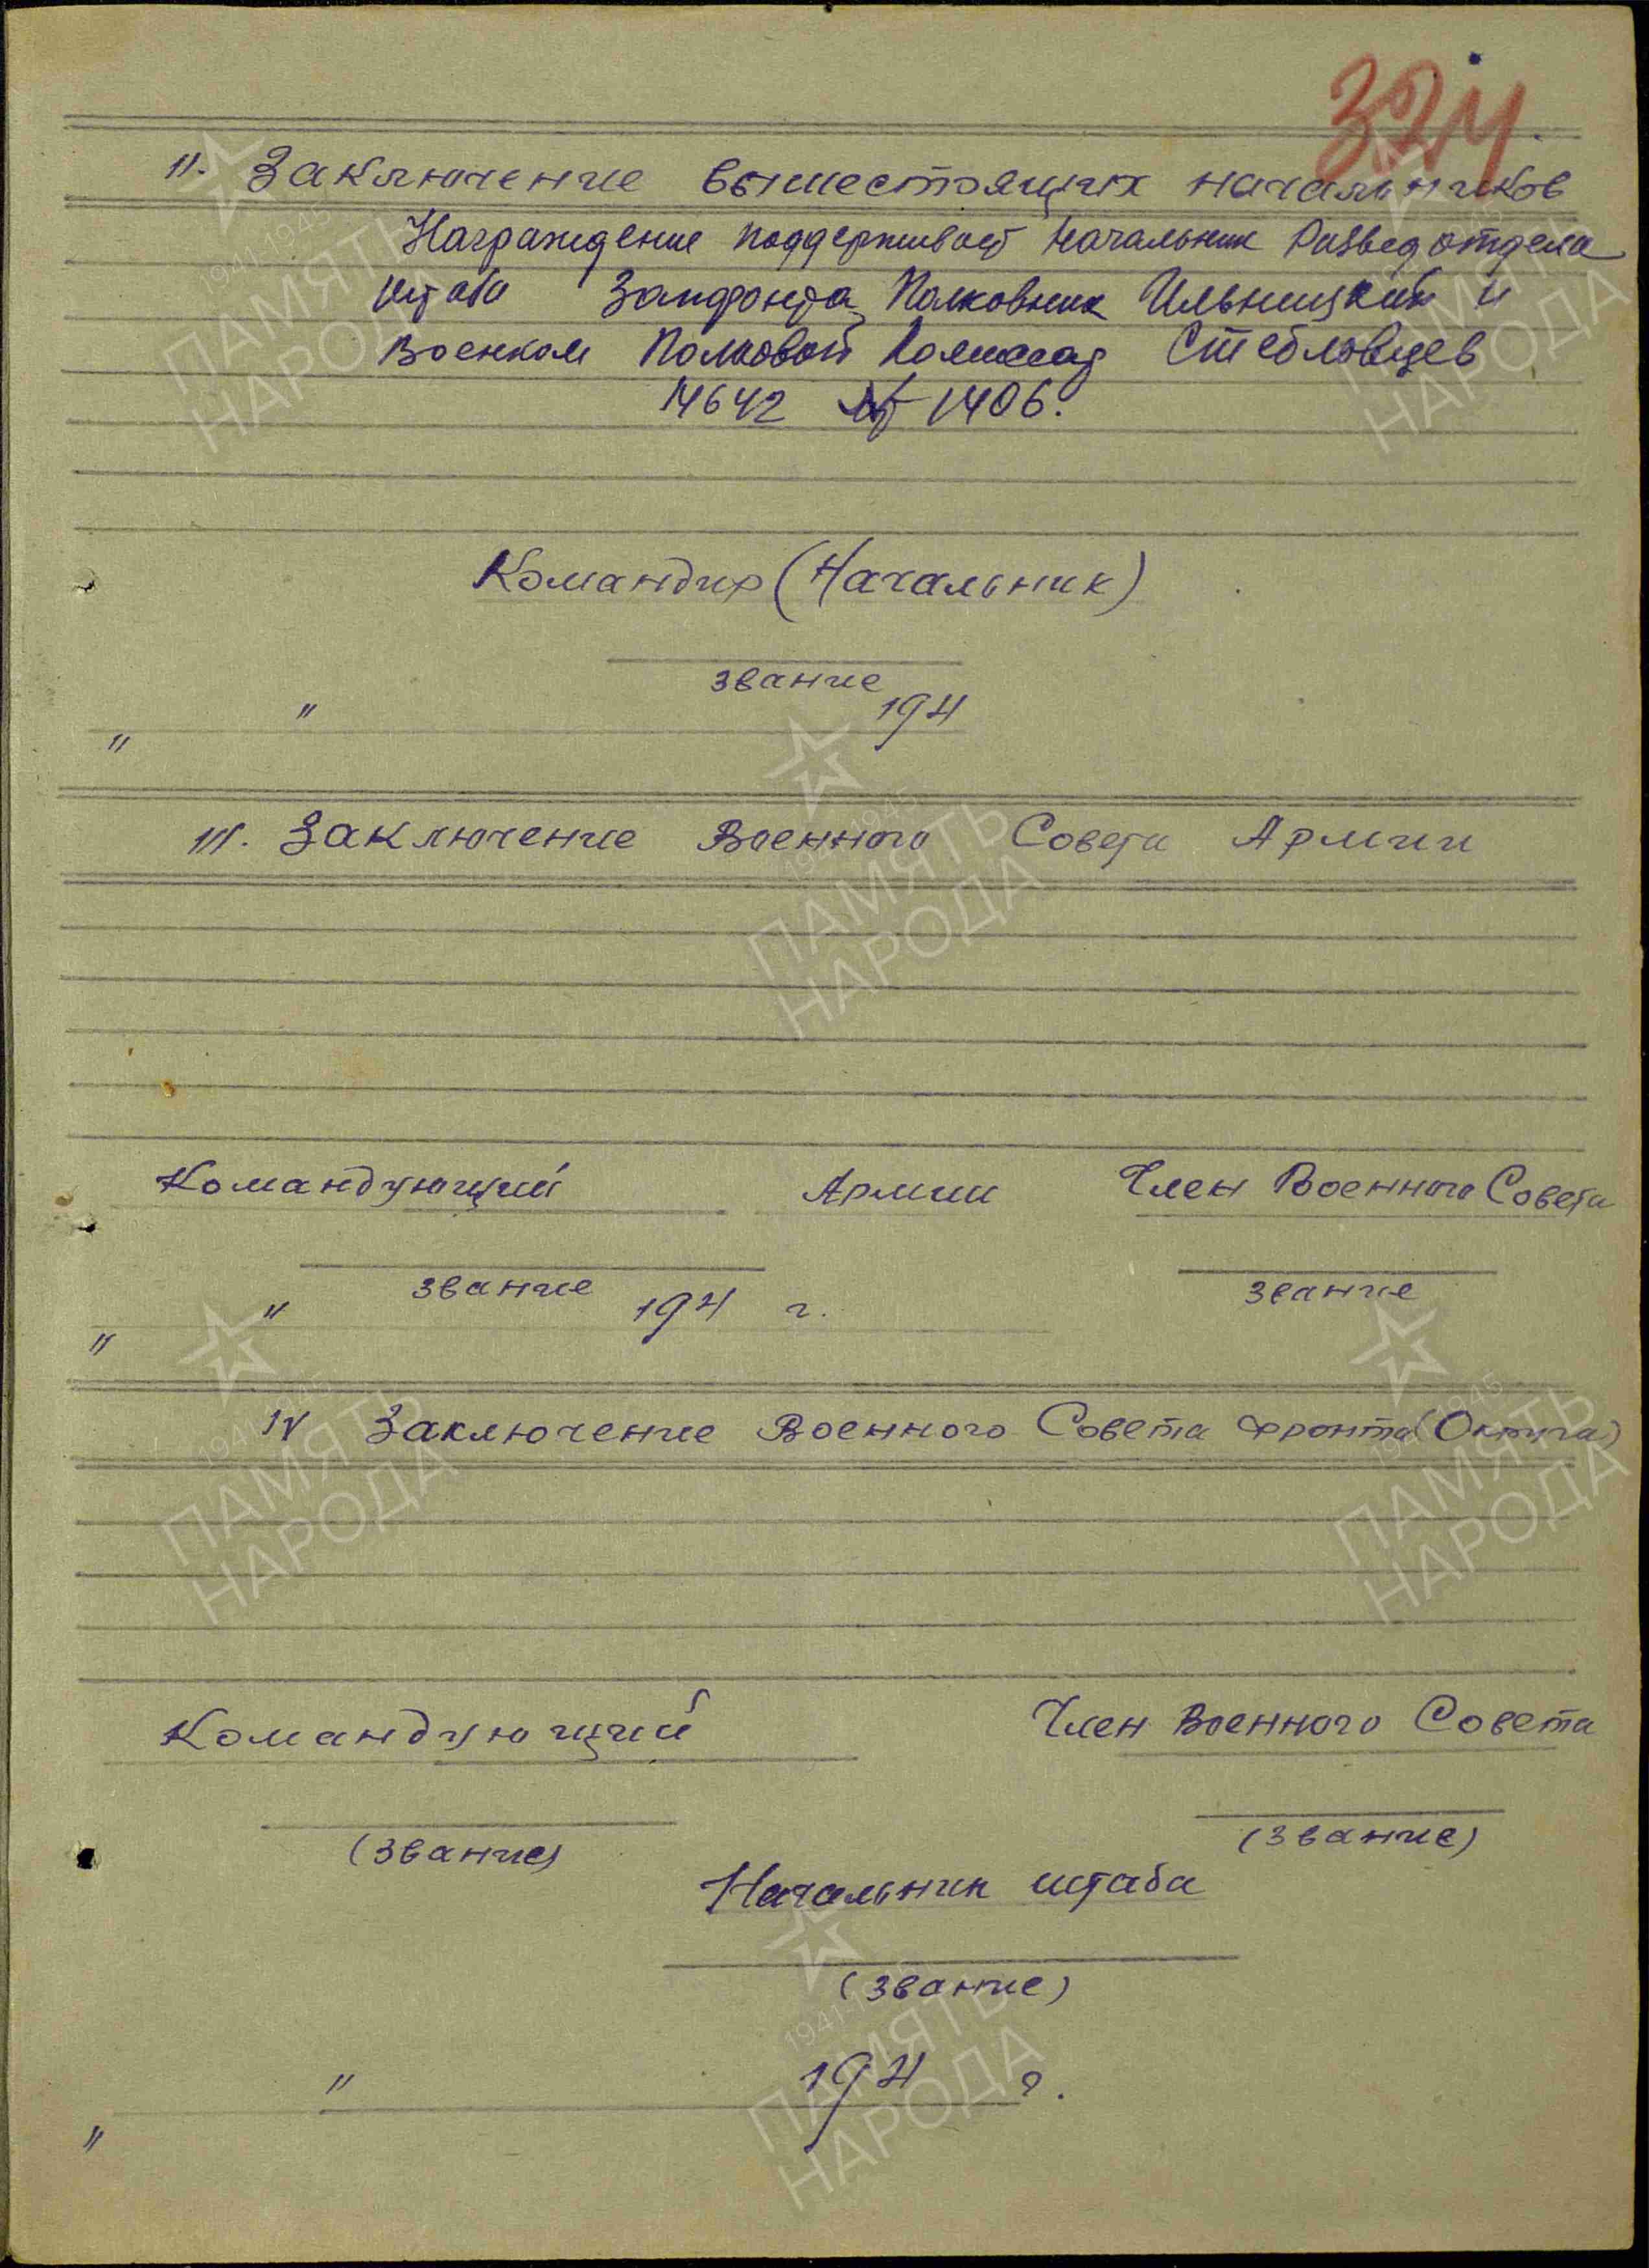 324
II. Заключение вышестоящих начальников
Награждение поддерживает Начальник Разведотдела
штаба Запфронта Полковник Ильницкий и
Военком Полковой Комиссар Стебловцев
14642 № 1406.
Командир (Начальник)
звание
" " 194
III. Заключение Военного Совета Армии
Командующий Армии Член Военного Совета
звание звание
" " 194 г.
IV Заключение Военного Совета фронта (Округа)
Командующий Член Военного Совета
(звание) (звание)
Начальник штаба
(звание)
" " 194 г.
1941 1945
ПАМЯТЬ
НАРОДА